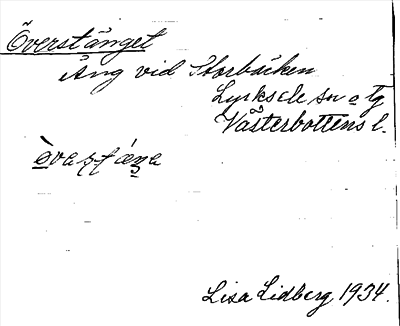 Överstänget
Äng vid Storbäcken
Lycksele sn o tg
Västerbottens l.
Lisa Lidberg, 1934.